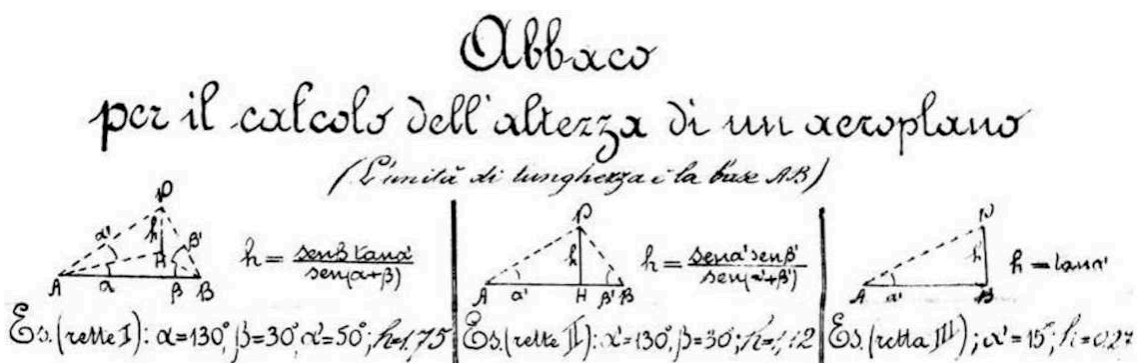 Abbaco
per il calcolo dell'altezza di un aeroplano
(L'unità di lunghezza è la base AB)
P h H α' β' A α β B
h = senβ tanα' / sen(α+β)
Es. (rette I): α=130°, β=30° α'=50°; h=1,75
P h A α' H β' B
h = senα' senβ' / sen(α'+β')
Es. (rette II): α'=130°, β=30°; h=1,12
P h A α' B
h = tanα'
Es. (retta III); α'=15°; h=0,27